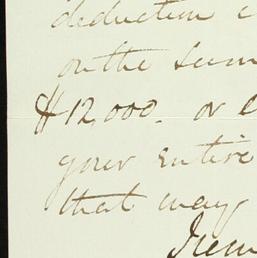 deduction
on the sum
$12,000. or
your entire
that way.